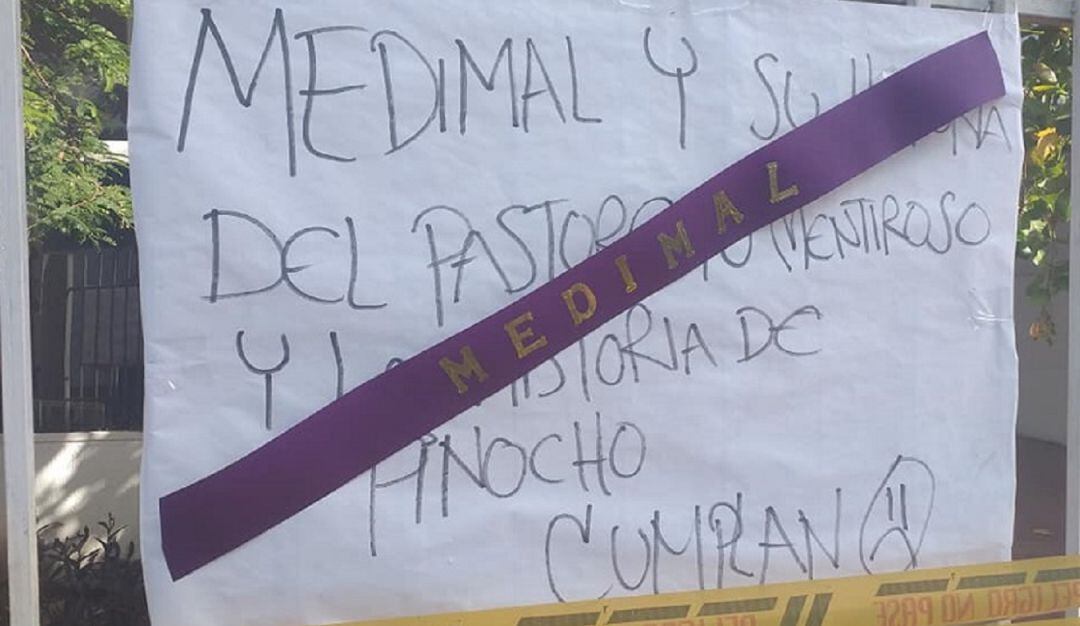 MEDIMAL Y SU
DEL PASTORCITO MENTIROSO
Y LA HISTORIA DE
PINOCHO
CUMPLAN
MEDIMAL
PELIGRO NO PASE